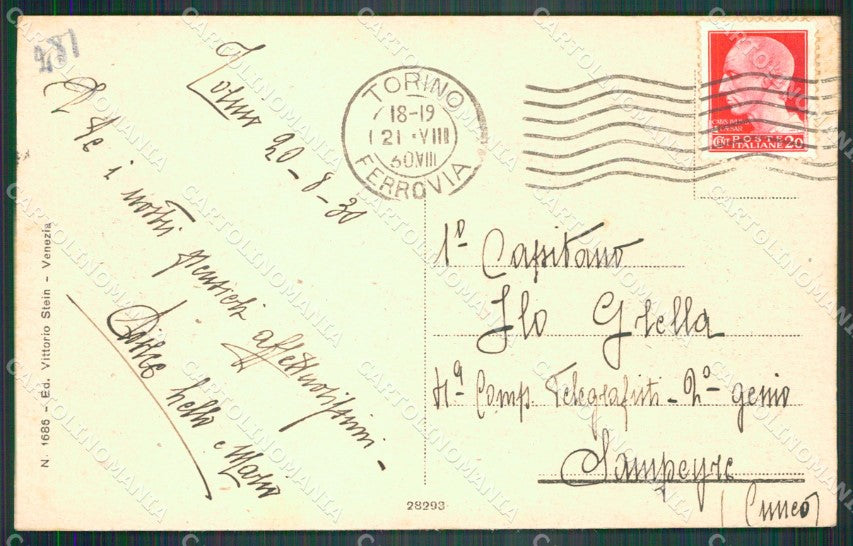 281
Torino 20-8-30
A te i nostri pensieri affettuosissimi -
e Mario
N. 1685 - Ed. Vittorio Stein - Venezia
TORINO
18-19
21 · VIII
30 VIII
FERROVIA
POSTE
ITALIANE
CENT 20
1º Capitano
Ilo Grella
4ª Comp. Telegrafisti - 2º genio
Sampeyre
(Cuneo)
28293
CARTOLINOMANIA